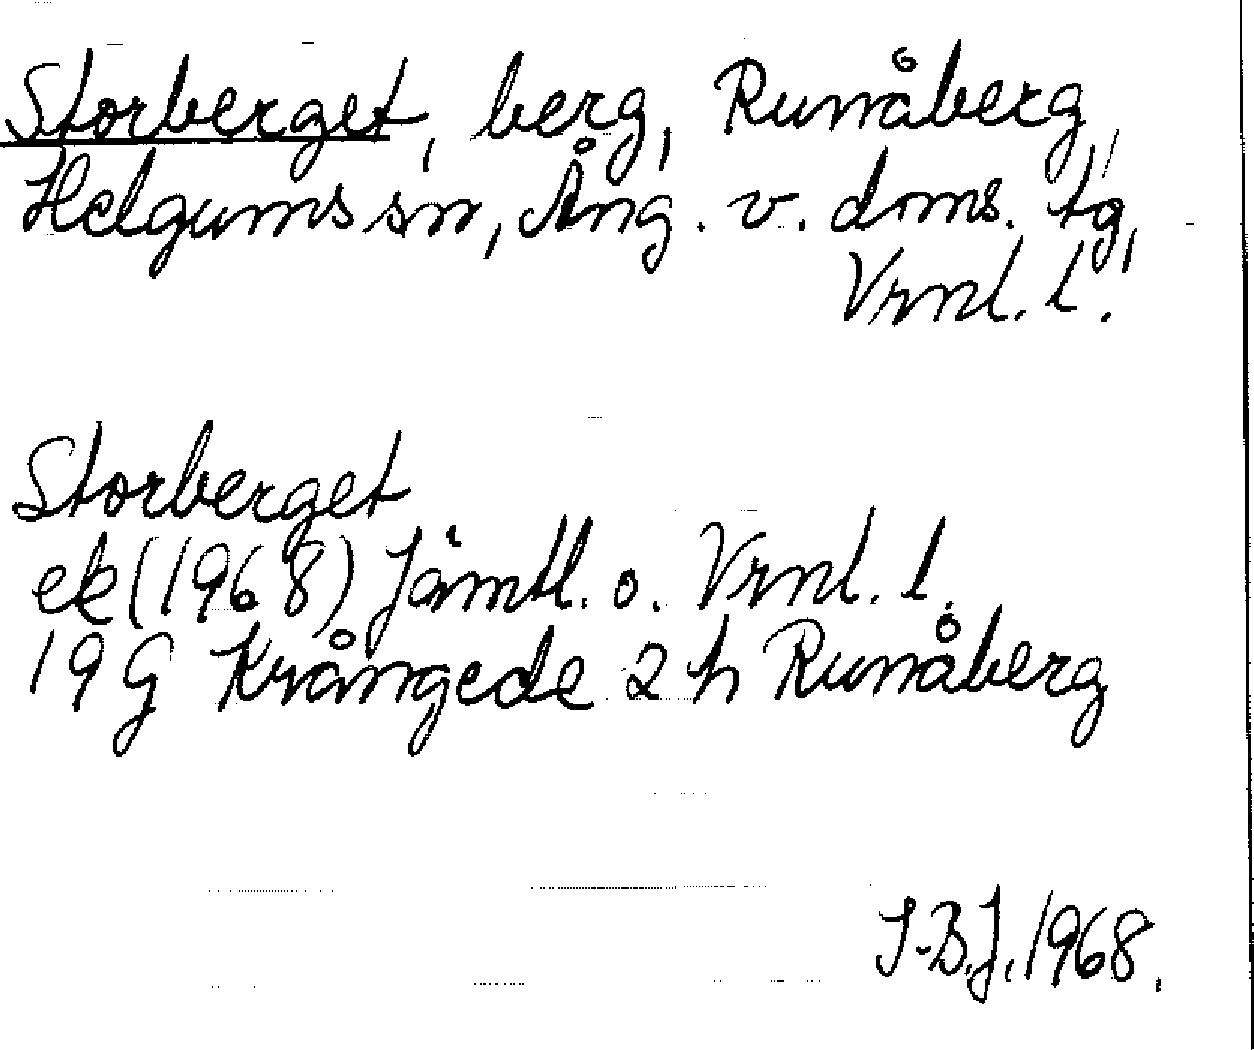 Storberget, berg, Runåberg,
Helgums sn, Ång. v. doms. tg,
Vrnl. l.
Storberget
ek (1968) Jämtl. o. Vrnl. l.
19 G Krångede 2 h Runåberg
I-B.J. 1968.